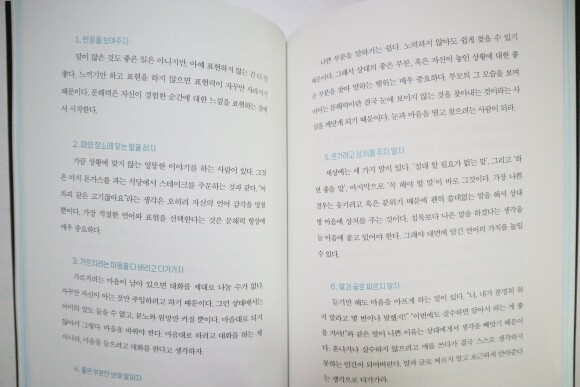 1. 반응을 보여주자
말이 많은 것도 좋은 일은 아니지만, 아예 표현하지 않는 건 더 안
좋다. 느끼기만 하고 표현을 하지 않으면 표현력이 자꾸만 사라지기
때문이다. 문해력은 자신이 경험한 순간에 대한 느낌을 표현하는 것에
서 시작한다.
2. 때와 장소에 맞는 말을 하자
가끔 상황에 맞지 않는 엉뚱한 이야기를 하는 사람이 있다. 그것
은 마치 돈가스를 파는 식당에서 스테이크를 주문하는 것과 같다. '어
차피 같은 고기잖아요'라는 생각은 오히려 자신의 언어 감각을 망칠
뿐이다. 가장 적절한 언어와 표현을 선택한다는 것은 문해력 향상에
매우 중요하다.
3. 가르치려는 마음을 다 버리고 다가가자
가르치려는 마음이 남아 있으면 대화를 제대로 나눌 수가 없다.
자꾸만 자신이 아는 것만 주입하려고 하기 때문이다. 그런 상태에서는
아이의 말도 들을 수 없고, 분노와 원망만 커질 뿐이다. 마음대로 되지
않아서 그렇다. 마음을 바꿔야 한다. 마음대로 하려고 대화를 하는 게
아니라, 마음을 들으려고 대화를 한다고 생각하자.
4. 좋은 부분만 보며 말하자
나쁜 부분을 말하기는 쉽다. 노력하지 않아도 쉽게 찾을 수 있기
때문이다. 그래서 상대의 좋은 부분, 혹은 자신이 놓인 상황에 대한 좋
은 부분을 찾아 말하는 행위는 매우 중요하다. 부모의 그 모습을 보며
아이는 문해력이란 결국 눈에 보이지 않는 것을 찾아내는 것이라는 사
실을 깨닫게 되기 때문이다. 눈과 마음을 열고 찾으려는 사람이 되라.
5. 웃기려고 상처를 주지 말자
세상에는 세 가지 말이 있다. '절대 할 필요가 없는 말', 그리고 '하
면 좋을 말', 마지막으로 '꼭 해야 할 말'이 바로 그것이다. 가장 나쁜
경우는 웃기려고 혹은 분위기 때문에 괜히 쓸데없는 말을 해서 상대
방 마음에 상처를 주는 것이다. 침묵보다 나은 말을 하겠다는 생각을
늘 마음에 품고 있어야 한다. 그래야 내면에 담긴 언어의 가치를 높일
수 있다.
6. 말과 글로 찌르지 말자
듣기만 해도 마음을 아프게 하는 말이 있다. "너, 내가 분명히 하
지 말라고 몇 번이나 말했지!" "이번에도 실수하면 알아서 하는 게 좋
을 거야!"와 같은 말이 나쁜 이유는 상대에게서 생각을 빼앗기 때문이
다. 혼나거나 실수하지 않으려고 애를 쓰다가 결국 스스로 생각하지
못하는 인간이 되어버린다. 말과 글로 찌르지 말고 포근하게 안아준다
는 생각으로 다가가라.